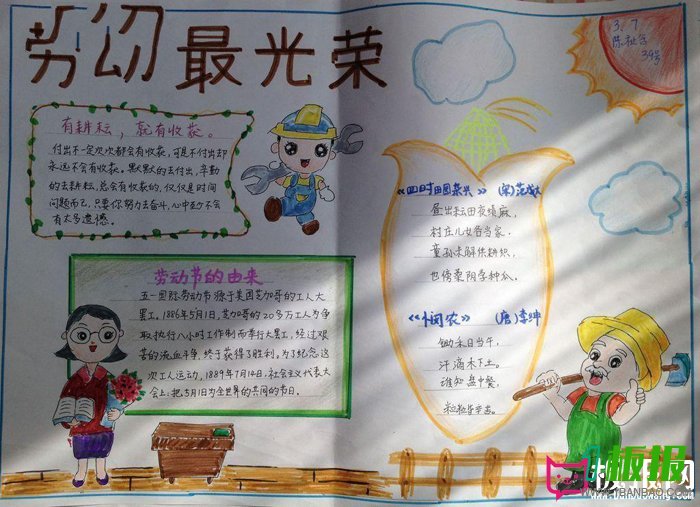 劳动最光荣
3.7
39号
有耕耘，就有收获。
付出不一定次次都会有收获，可是不付出却
永远不会有收获。默默的去付出，辛勤
的去耕耘，总会有收获的，仅仅是时间
问题而已，只要你努力去奋斗，心中改不会
有太多遗憾。
劳动节的由来
五一国际劳动节源于美国芝加哥的工人大
罢工。1886年5月1日，芝加哥的20多万工人为争
取执行八小时工作制而举行大罢工，经过艰
苦的流血斗争，终于获得了胜利。为了纪念这
次工人运动，1889年7月14日，社会主义代表大
会上：把5月1日为全世界的共同的节日。
《四时田园杂兴》 (宋)范成大
昼出耘田夜绩麻，
村庄儿女各当家。
童孙未解供耕织，
也傍桑阴学种瓜。
《悯农》 (唐)李绅
锄禾日当午，
汗滴禾下土。
谁知盘中餐，
粒粒皆辛苦。
板报网